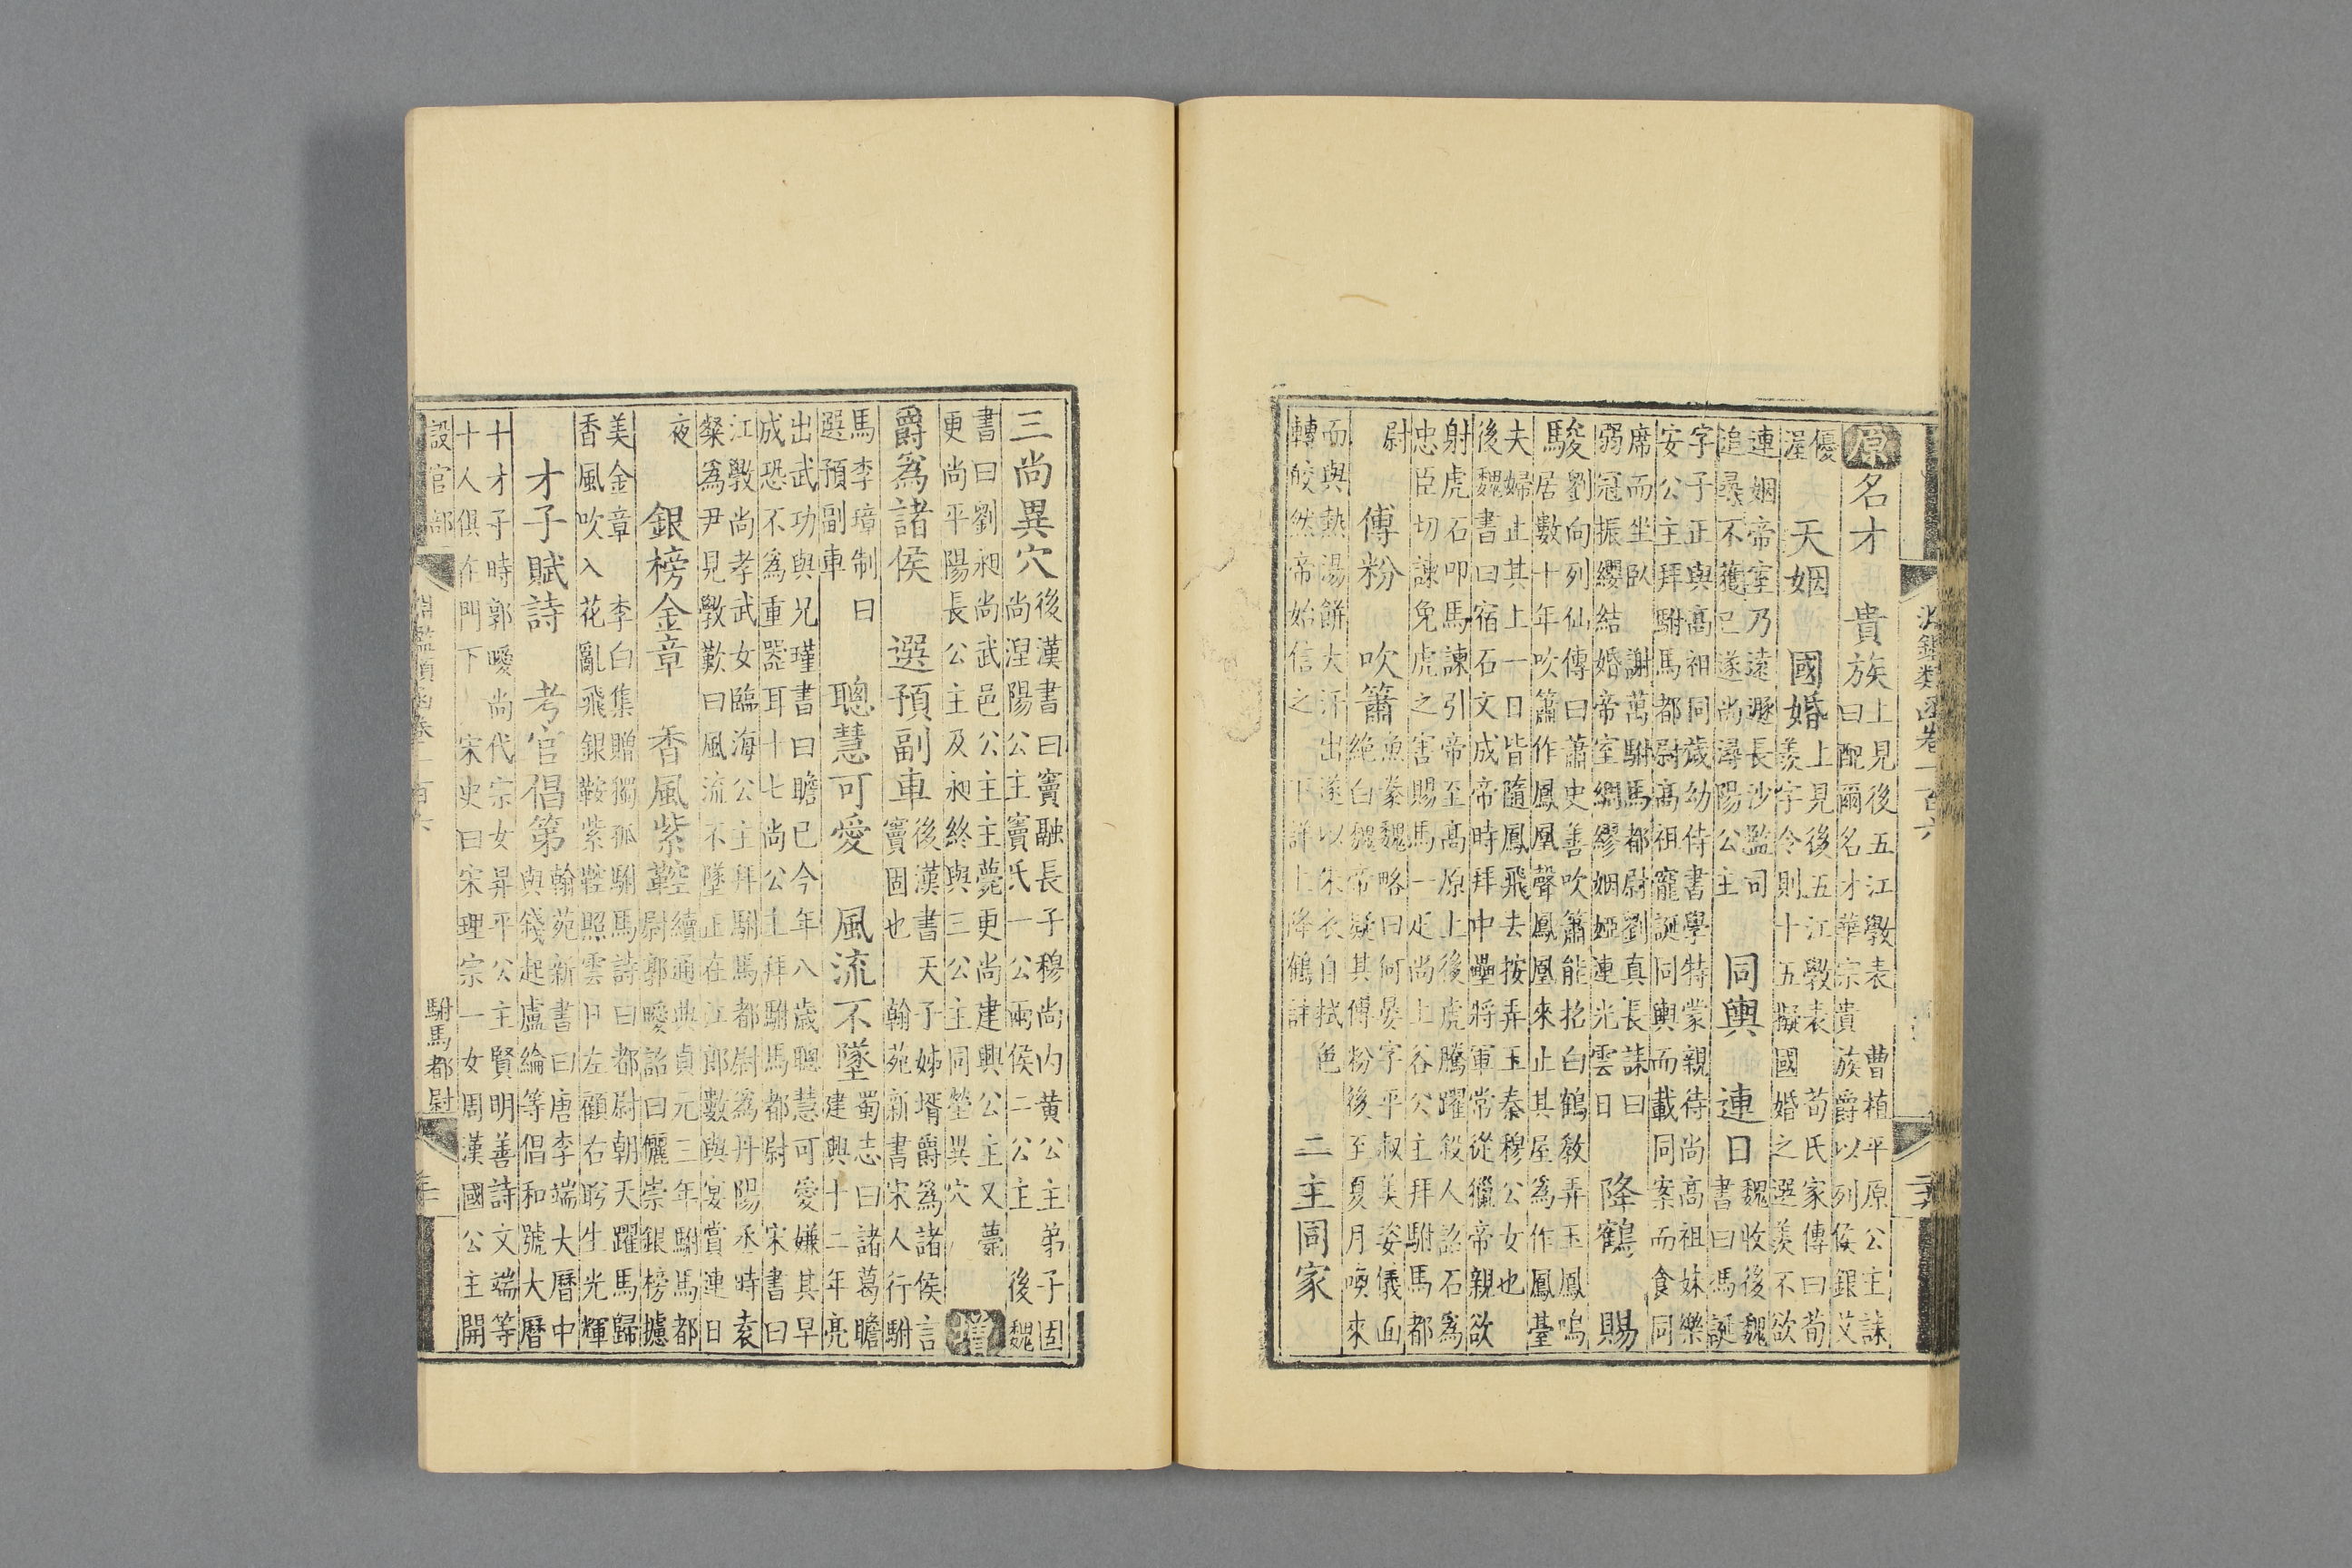 淵鑑類函卷一百六
原名才　貴族
上見後五江斆表　曹植平原公主誄
曰配爾名才華宗貴族爵以列侯銀艾
優
渥
天姻　國婚
上見後五江斆表　荀氏家傳曰荀
羨字令則十五擬國婚之選羨不欲
連姻帝室乃遠遯長沙監司
追尋不獲已遂尚潯陽公主
同輿　連日
魏收後魏
書曰馮誕
字子正與高祖同歲幼侍書學特蒙親待尚高祖妹樂
安公主拜駙馬都尉高祖寵誕同輿而載同案而食同
席而坐臥　謝萬駙馬都尉劉真長誄曰
弱冠振纓結婚帝室綢繆姻婭連光雲日
降鶴　賜
駿
劉向列仙傳曰蕭史善吹簫能招白鶴教弄玉鳳鳴
居數十年吹簫作鳳凰聲鳳凰來止其屋為作鳳臺
夫婦止其上一日皆隨鳳飛去按弄玉秦穆公女也
後魏書曰宿石文成帝時拜中壘將軍常從獵帝親欲
射虎石叩馬諫引帝至高原上後虎騰躍殺人詔石為
忠臣切諫免虎之害賜馬一疋尚上谷公主拜駙馬都
尉
傅粉　吹簫
魚豢魏略曰何晏字平叔美姿儀面
絕白魏帝疑其傅粉後至夏月喚來
而與熱湯餅大汗出遂以朱衣自拭色
轉皎然帝始信之　下詳上降鶴註
二主同家
三尚異穴
後漢書曰竇融長子穆尚內黃公主弟子固
尚涅陽公主竇氏一公兩侯二公主　後魏
書曰劉昶尚武邑公主主薨更尚建興公主又薨
更尚平陽長公主及昶終與三公主同塋異穴
增
爵為諸侯　選預副車
後漢書天子姊壻爵為諸侯言
竇固也　翰苑新書宋人行駙
馬李璋制曰
選預副車
聰慧可愛　風流不墜
蜀志曰諸葛瞻
建興十二年亮
出武功與兄瑾書曰瞻已今年八歲聰慧可愛嫌其早
成恐不為重器耳十七尚公主拜駙馬都尉　宋書曰
江斆尚孝武女臨海公主拜駙馬都尉為丹陽丞時袁
粲為尹見斆歎曰風流不墜正在江郎數與宴賞連日
夜
銀榜金章　香風紫鞚
續通典貞元三年駙馬都
尉郭曖詔曰儷崇銀榜攄
美金章　李白集贈獨孤駙馬詩曰都尉朝天躍馬歸
香風吹入花亂飛銀鞍紫鞚照雲日左顧右盻生光輝
才子賦詩　考官倡第
翰苑新書曰唐李端大曆中
與錢起盧綸等倡和號大曆
十才子時郭曖尚代宗女昇平公主賢明善詩文端等
十人俱在門下　宋史曰宋理宗一女周漢國公主開
設官部　淵鑑類函卷一百六　駙馬都尉